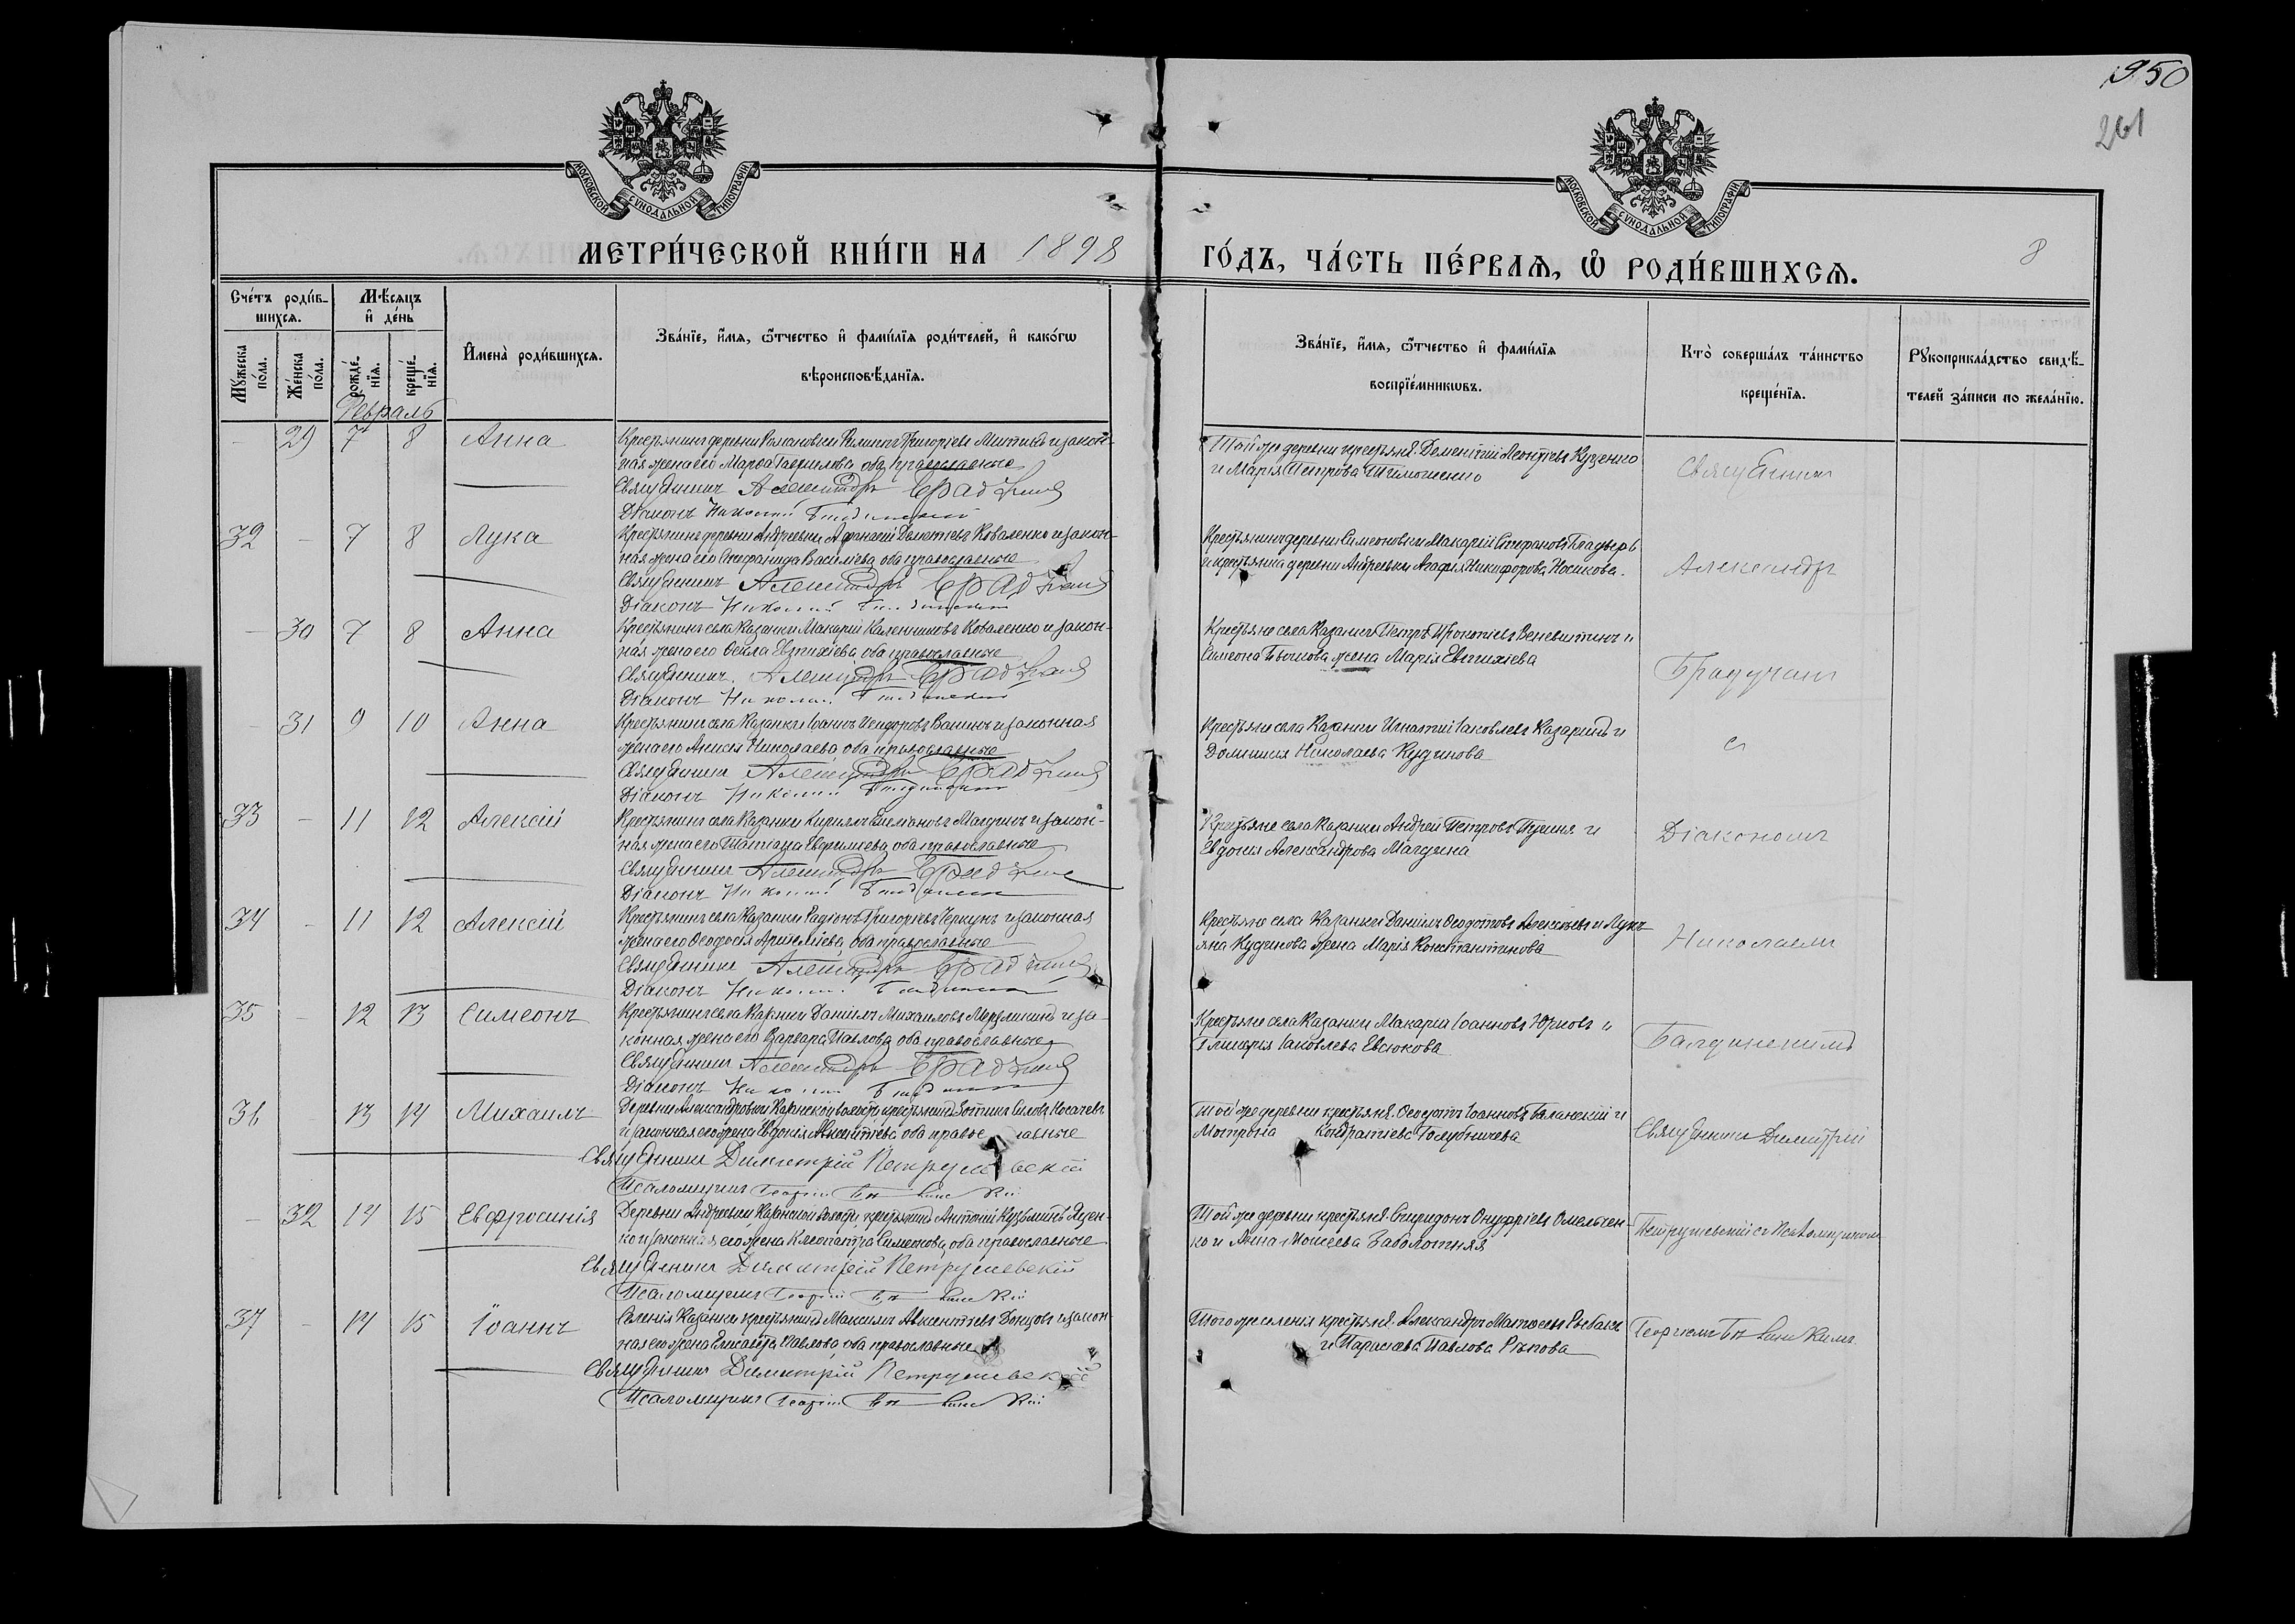 950
261
МОСКОВСКОЙ СѴНОДАЛЬНОЙ ТИПОГРАФІИ
МОСКОВСКОЙ СѴНОДАЛЬНОЙ ТИПОГРАФІИ
МЕТРИ́ЧЕСКОЙ КНИ́ГИ НА 1898 ГО́ДЪ, ЧА́СТЬ ПЕ́РВАѦ, Ѡ҆ РОДИ́ВШИХСѦ.
8
Сче́тъ роди́в-
шихсѧ.
Мѣ́сѧцъ
и҆ де́нь
Мꙋ́жеска по́ла.
Же́нска по́ла.
рожде́-нїѧ.
креще́-нїѧ.
И҆мена̀ роди́вшихсѧ.
Зва́нїе, и҆́мѧ, ѻ҆́тчество и҆ фами́лїѧ роди́телей, и҆ како́гѡ
вѣроисповѣ́данїѧ.
Зва́нїе, и҆́мѧ, ѻ҆́тчество и҆ фами́лїѧ
воспрїе́мникѡвъ.
Кто̀ соверша́лъ та́инство
креще́нїѧ.
Рꙋкоприкла́дство свидѣ́-
телей за́писи по жела́нїю.
Февраль
29 7 8 Анна Крестьянинъ деревни Романовки Филиппъ Григорьевъ и закон-
ная жена его Марѳа Гаврилова оба православные
Священникъ Александръ
Діаконъ Николай
Той же деревни крестьяне Дометій Леонтіевъ Куценко
и Марія Петрова Тимошенко
Священникъ
32 - 7 8 Лука Крестьянинъ деревни Андреевки Коваленко и закон-
ная жена его Стефанида Васильева оба православные
Священникъ Александръ
Діаконъ Николай
Крестьянинъ деревни Симоновки Макарій Стефановъ
и крестьянка деревни Андреевки Агафія Никифорова Носикова.
Александръ
- 30 7 8 Анна Крестьянинъ села Казанки Макарій Каленниковъ Коваленко и закон-
ная жена его Ѳекла Евтихіева оба православные
Священникъ Александръ
Діаконъ Николай
Крестьяне села Казанки Петръ Прокопіевъ Веневитинъ и
Симеона жена Марія Евтихіева
- 31 9 10 Анна Крестьянинъ села Казанки Іоаннъ Ванинъ и законная
жена его Анисія Николаева оба православные
Священникъ Александръ
Діаконъ Николай
Крестьяне села Казанки Игнатій Іаковлевъ Казаринъ и
Домникія Николаева Кудинова
съ
33 - 11 12 Алексій Крестьянинъ села Казанки Кириллъ и закон-
ная жена его Татіана Евфиміева оба православные
Священникъ Александръ
Діаконъ Николай
Крестьяне села Казанки Андрей Петровъ и
Евдокія Александрова
Діакономъ
34 - 11 12 Алексій Крестьянинъ села Казанки Родіонъ Григорьевъ и законная
жена его Ѳеодосія Артеміева оба православные
Священникъ Александръ
Діаконъ Николай
Крестьяне села Казанки Даніилъ Ѳеодотовъ Алексѣевъ и Лукь-
яна Кудинова жена Марія Константинова
Николаемъ
35 - 12 13 Симеонъ Крестьянинъ села Казанки Даніилъ Михаиловъ и за-
конная жена его Варвара Павлова оба православные
Священникъ Александръ
Діаконъ Николай
Крестьяне села Казанки Макарій Іоанновъ и
Гликерія Іаковлева Евсюкова
36 - 13 14 Михаилъ Деревни Александровки Казанской волости крестьянинъ Носачевъ
и законная его жена Евдокія Авксентіева оба православные
Священникъ Димитрій Петрушевскій
Псаломщикъ Георгій
Той же деревни крестьяне Ѳеодотъ Іоанновъ и
Матрона Кондратіева Голубничева
Священникъ Димитрій
- 32 14 15 Евфросинія Деревни Андреевки Казанской волости крестьянинъ Антоній Кузьминъ Яцен-
ко и законная его жена Клеопатра Симеонова оба православные
Священникъ Димитрій Петрушевскій
Псаломщикъ Георгій
Той же деревни крестьяне Спиридонъ Онуфріевъ Омельчен-
ко и Анна Моисеева Заболотняя
Петрушевскій съ Псаломщикомъ
37 - 14 15 Іоаннъ Селенія Казанки крестьянинъ Максимъ Авксентіевъ Донцовъ и закон
ная его жена Елисавета Павлова оба православные
Священникъ Димитрій Петрушевскій
Псаломщикъ Георгій
Того же селенія крестьяне Александръ Матѳеевъ Рыбакъ
и Параскева Павлова Рѣпова
Георгіемъ